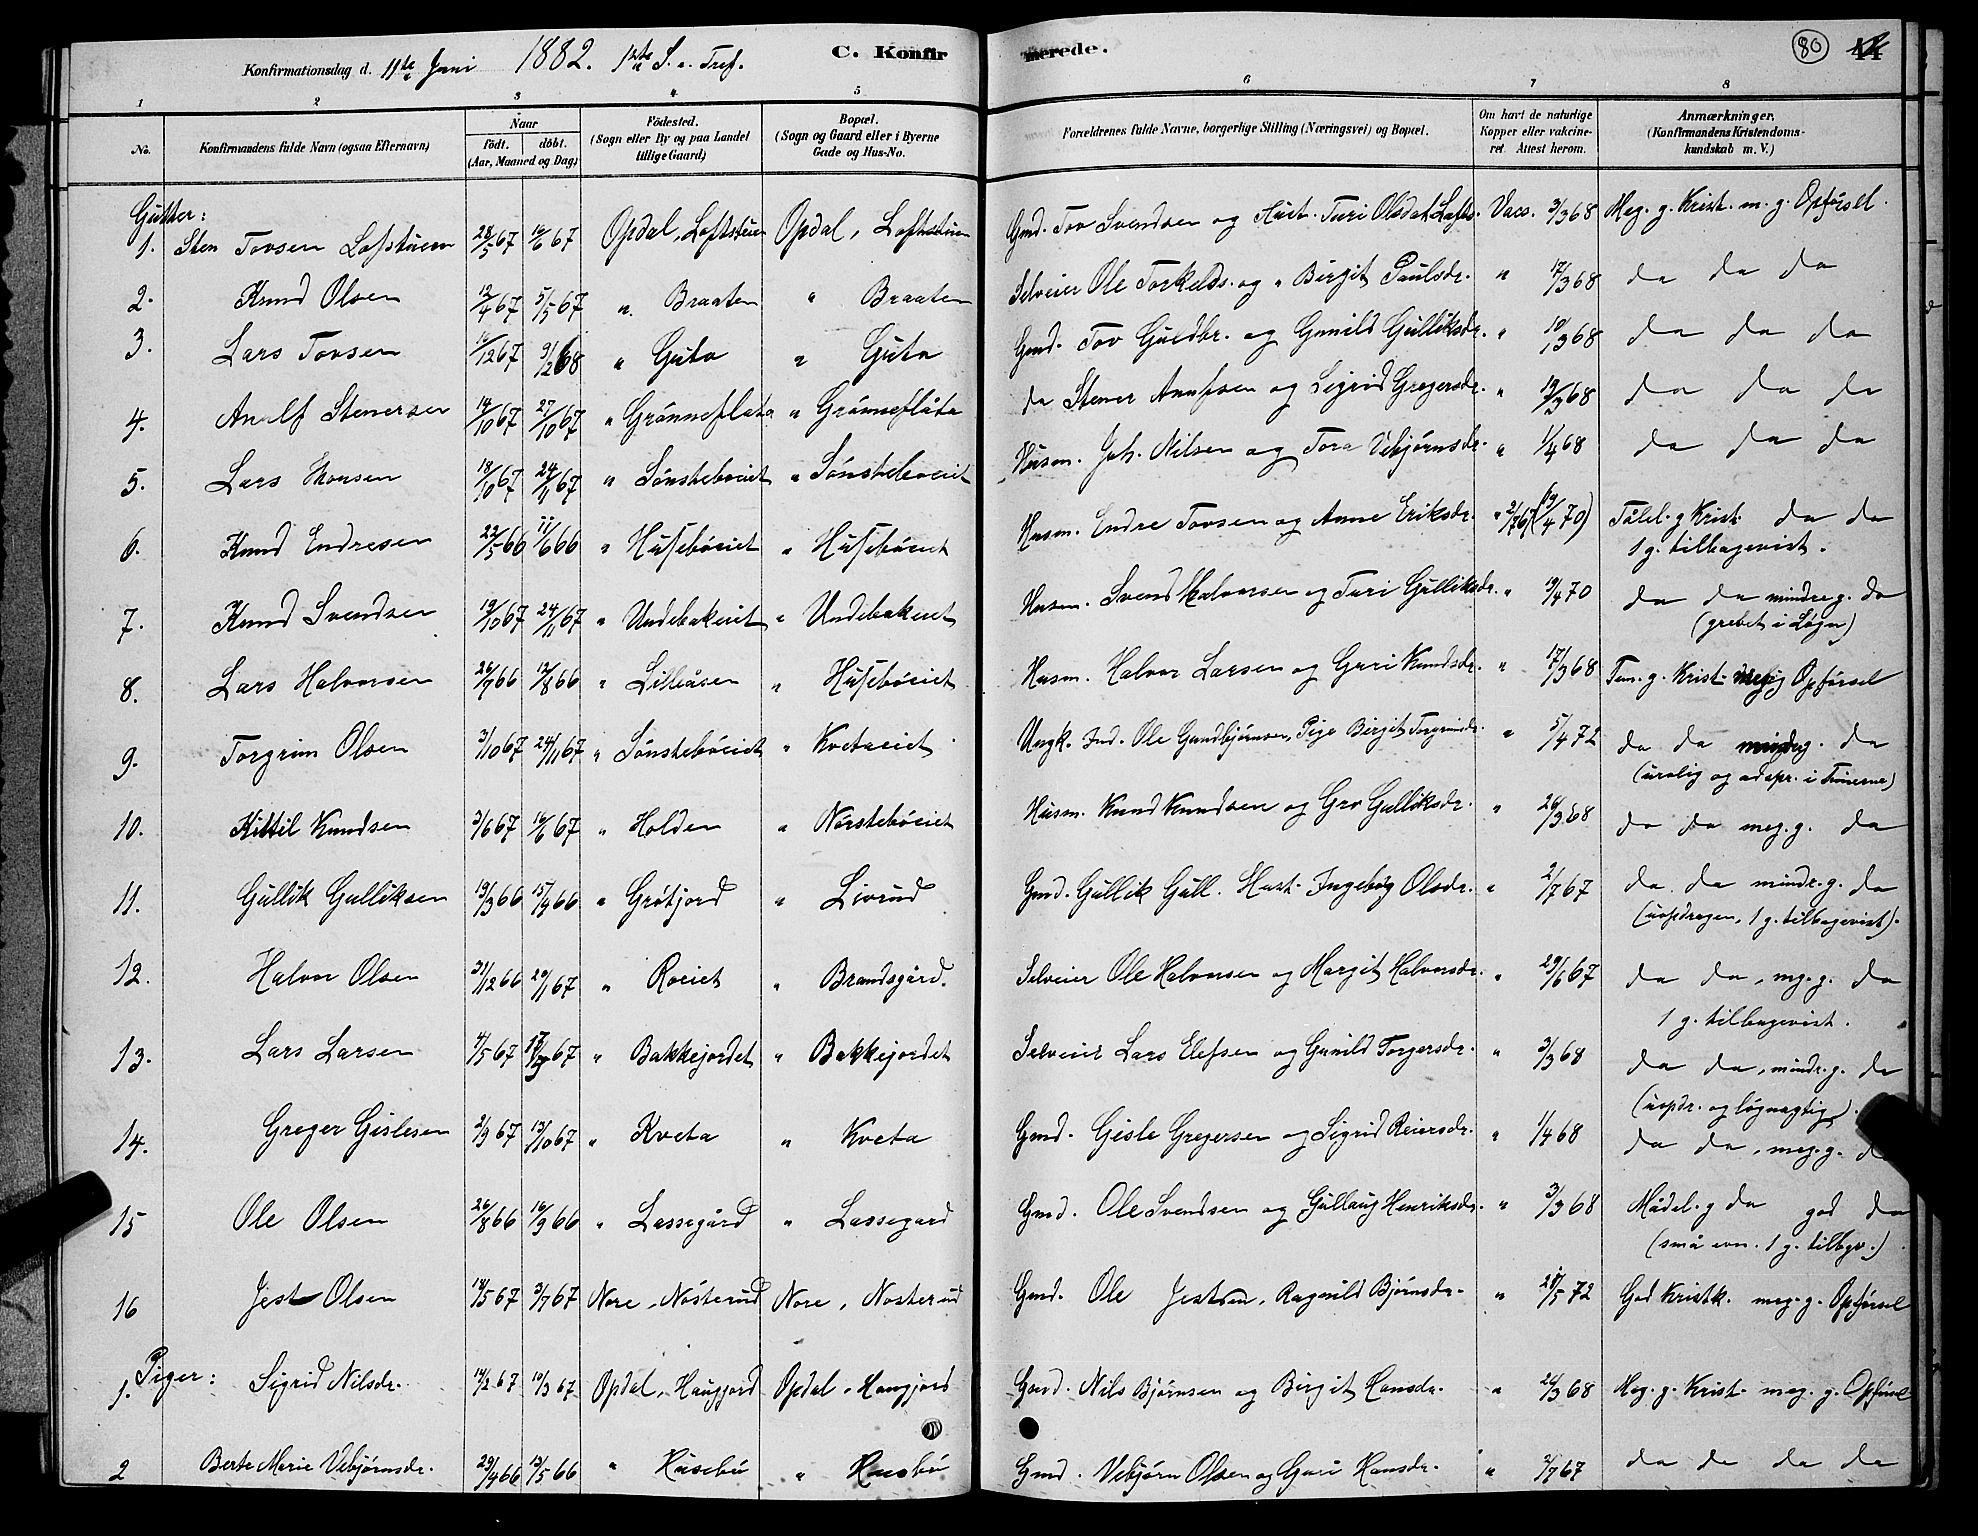 Konfirmationsdag d. 11te Juni 1882. 1ste S. e. Tref. C. Konfir merede. 80
1 2 3 4 5 6 7 8
No. Konfirmandens fulde Navn (ogsaa Efternavn) Naar født. døbt. (Aar, Maaned og Dag) Fødested. (Sogn eller By og paa Landet tillige Gaard) Bopæl. (Sogn og Gaard eller i Byerne Gade og Hus-No. Forældrenes fulde Navne, borgerlige Stilling (Næringsvei) og Bopæl. Om havt de naturlige Kopper eller vakcineret. Attest herom. Anmærkninger. (Konfirmandens Kristendomskundskab m. V.)
Gutter:
1. Sten Tovsen Loftstuen 28/5 67 16/6 67 Opdal, Loftstuen Opdal, Loftstuen Gmd. Tov Svendsen og Hust. Turi Olsdat. Lofts. Vacc. 3/3 68 Meg. g. Krist. m. g. Opførsel.
2. Knud Olsen 12/4 67 5/5 67 " Braaten " Braaten Selveier Ole Torkelds. og " Birgit Paulsdr. " 17/3 68 da da da
3. Lars Tovsen 16/12 67 9/2 68 " Guta " Guta Gmd. Tov Guldbr. og Gunild Gulliksdr. " 10/3 68 da da da
4. Anulf Stenersen 14/10 67 27/10 67 " Grønneflata " Grønneflata da Stener Anulfsen og Sigrid Gregersdr. " 19/3 68 da da da
5. Lars Hansen 18/10 67 24/11 67 " Sønstebøeiet " Sønstebøeiet Husm. Joh. Nilsen og Tora Vebjørnsdr. " 1/4 68 da da da
6. Knud Endresen 22/5 66 11/6 66 " Husebøeiet " Husebøeiet Husm. Endre Tovsen og Anne Eriksdr. " 2/7 67 (19/4 70) Tålel. g Krist. da da
1 g. tilbagevist.
7. Knud Svendsen 19/10 67 24/11 67 " Undebakeiet " Undebakeiet Husm. Svend Halvorsen og Turi Gulliksdr. " 19/4 70 da da mindre g. da
(grebet i Løgn)
8. Lars Halvorsen 26/7 66 12/8 66 " Lilleåsen " Husebøeiet Husm. Halvor Larsen og Guri Knudsdr. " 17/3 68 Tem. g. Krist. Opførsel
9. Torgrim Olsen 3/10 67 24/11 67 " Sønstebøeiet " Kvetaeiet Ungk. Ind. Ole Gundbjørnsen, Pige Birgit Torgrimsdr. " 5/4 72 da da mindreg. da
(urolig og adspr. i Timerne)
10. Kittil Knudsen 3/6 67 16/6 67 " Holden " Nørstebøeiet Husm. Knud Knudsen og Gro Gulliksdr. " 26/3 68 da da meg. g. da
11. Gullik Gulliksen 19/3 66 15/4 66 " Grøtjord " Livrud Gmd. Gullik Gull. Hust. Ingebôg Olsdr. " 2/7 67 da da mindr. g. da
(uopdragen, 1 g. tilbagevist).
12. Halvor Olsen 31/12 66 20/1 67 " Roeiet " Brandsgård. Selveier Ole Halvorsen og Margit Halvorsdr. " 29/6 67 da da, meg. g. da
1 g. tilbagevist.
13. Lars Larsen 4/5 67 67 " Bakkejordet " Bakkejordet Selveier Lars Elefsen og Gunild Torgersdr. " 3/3 68 da da, mindr. g. da
(uopdr. og løgnagtig).
14. Greger Gislesen 2/9 67 13/10 67 " Kveta " Kveta Gmd. Gisle Gregersen og Sigrid Reiersdr. " 1/4 68 da da, meg. g. da
15 Ole Olsen 26/8 66 16/9 66 " Lassegård " Lassegard Gmd. Ole Svendsen og Gullaug Henriksdr. " 3/3 68 Mådel. g da god da
(små evn. 1 g. tilbgv.).
16 Jest Olsen 14/5 67 3/7 67 Nore, Nösterud Nore, Nosterud Gmd. Ole Jestsen, Ragnild Bjørnsdr. " 21/5 72 God Kristk. meg. g. Opførsel
Piger:
1. Sigrid Nilsdr. 14/2 67 10/3 67 Opdal, Haugjord Opdal, Haugjord Gard. Nils Bjørnsen og Birgit Hansdr. " 24/3 68 Meg. g. Krist. meg. g. Opførsel
2 Berte Marie Vebjørnsdr. 29/4 66 13/5 66 " Husebø " Husebø Gmd. Vebjørn Olsen og Guri Hansdr. " 2/7 67 da da da da